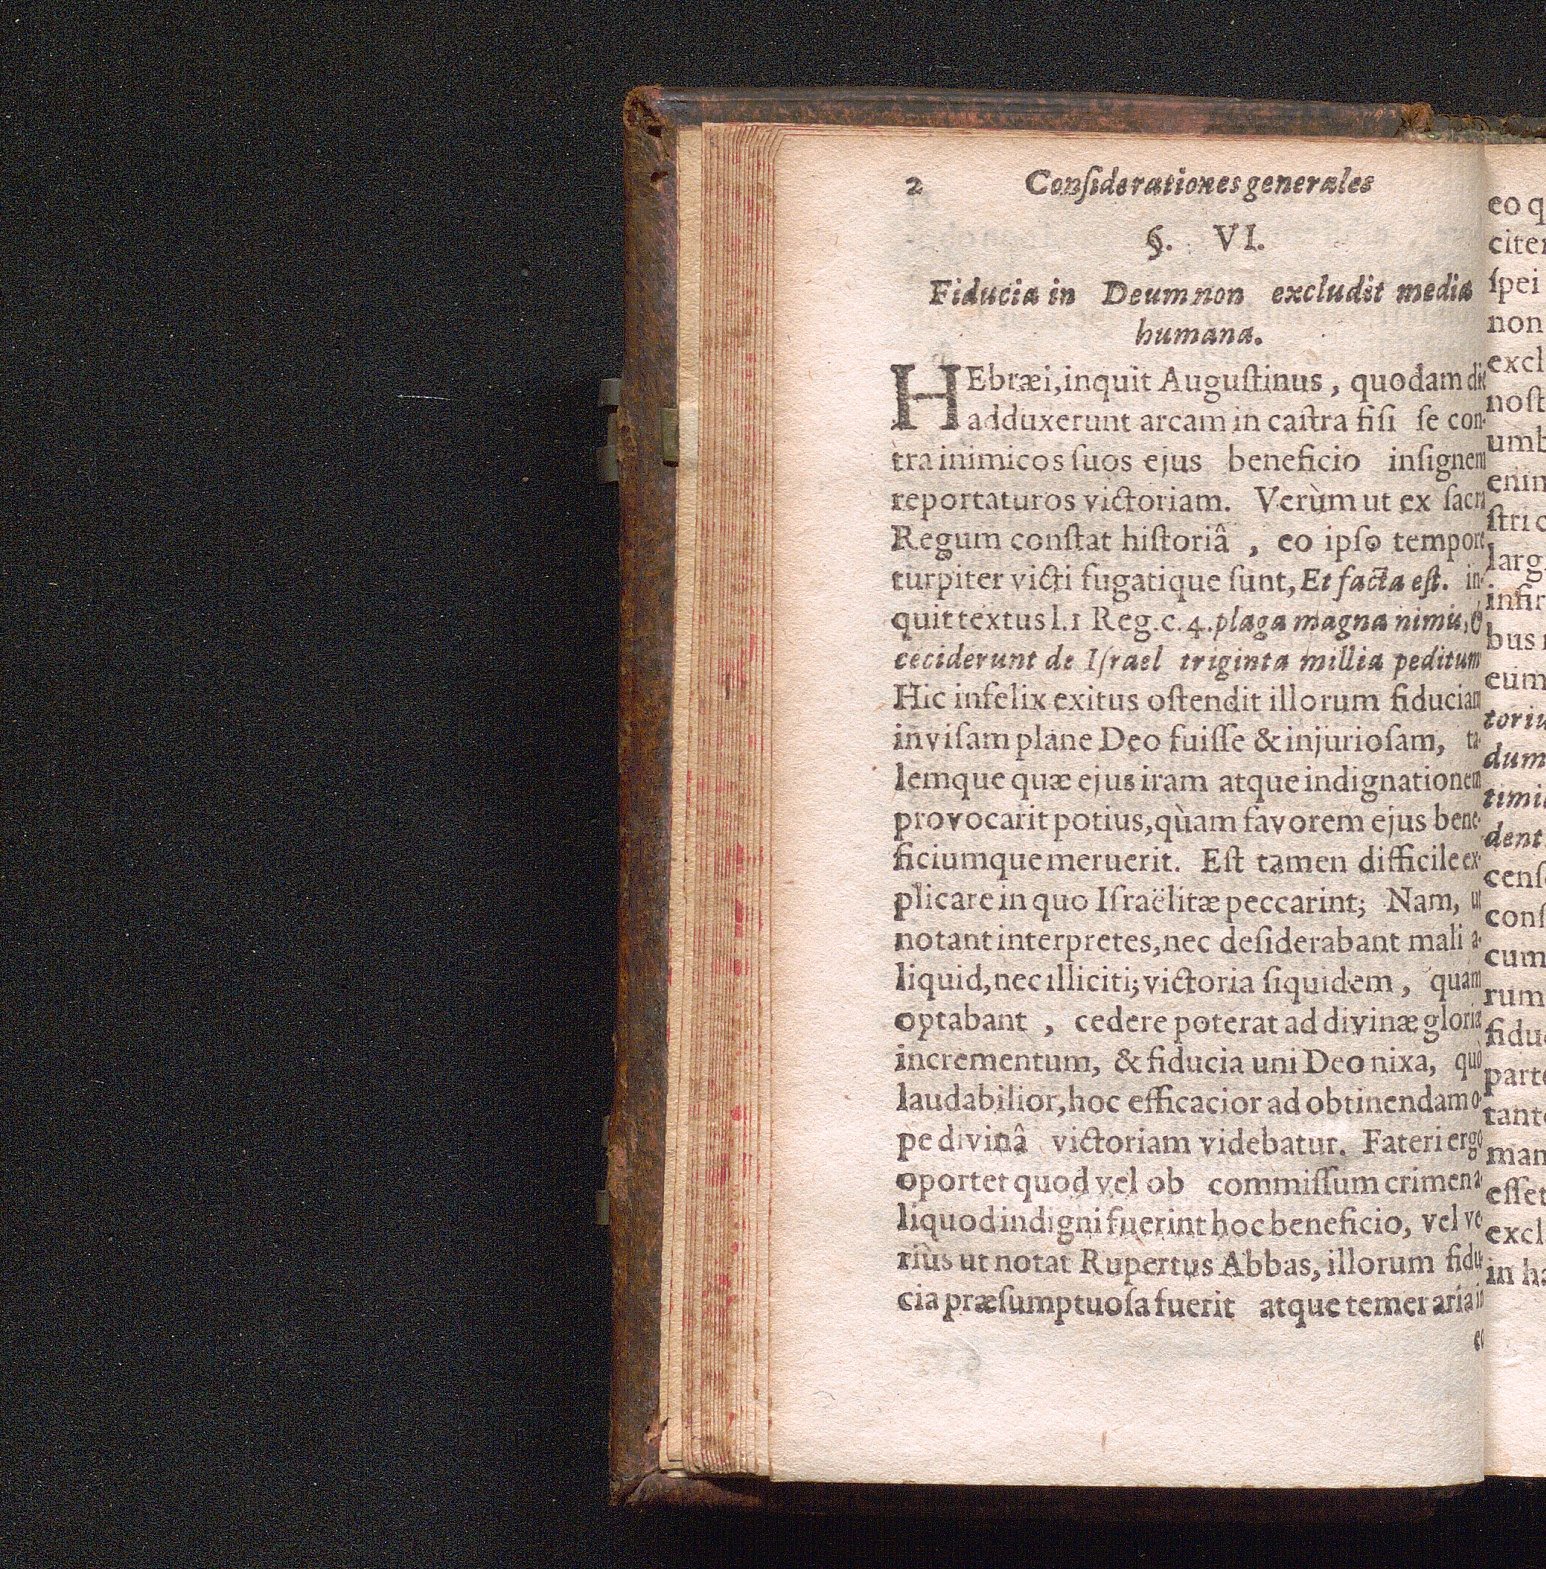 2 Conſiderationes generales
§. VI.
Fiducia in Deum non excludit media
humana.
HEbræi, inquit Auguſtinus, quodam die
adduxerunt arcam in caſtra fiſi ſe con-
tra inimicos ſuos ejus beneficio inſignem
reportaturos victoriam. Verùm ut ex ſacra
Regum conſtat hiſtoriâ, eo ipſo tempore
turpiter victi fugatique ſunt, Et facta eſt. in-
quit textus l.1 Reg. c. 4. plaga magna nimis, &
ceciderunt de Iſrael triginta millia peditum
Hic infelix exitus oſtendit illorum fiduciam
inviſam plane Deo fuiſſe & injurioſam, ta-
lemque quæ ejus iram atque indignationem
provocarit potius, quàm favorem ejus bene-
ficiumque meruerit. Eſt tamen difficile ex-
plicare in quo Iſraëlitæ peccarint; Nam, ut
notant interpretes, nec deſiderabant mali a-
liquid, nec illiciti; victoria ſiquidem, quam
optabant, cedere poterat ad divinæ gloriæ
incrementum, & fiducia uni Deo nixa, quò
laudabilior, hoc efficacior ad obtinendam o-
pe divinâ victoriam videbatur. Fateri ergo
oportet quod vel ob commiſſum crimen a-
liquod indigni fuerint hoc beneficio, vel ve-
riùs ut notat Rupertus Abbas, illorum fidu-
cia præſumptuoſa fuerit atque temeraria in
eo
eo q
citer
ſpei
non
excl
noſt
umb
enim
ſtri c
larg
infir
bus
eum
toriu
dum
timi
dent
cenſ
conſ
cum
rum
fidu
part
tant
man
eſſet
excl
in ha